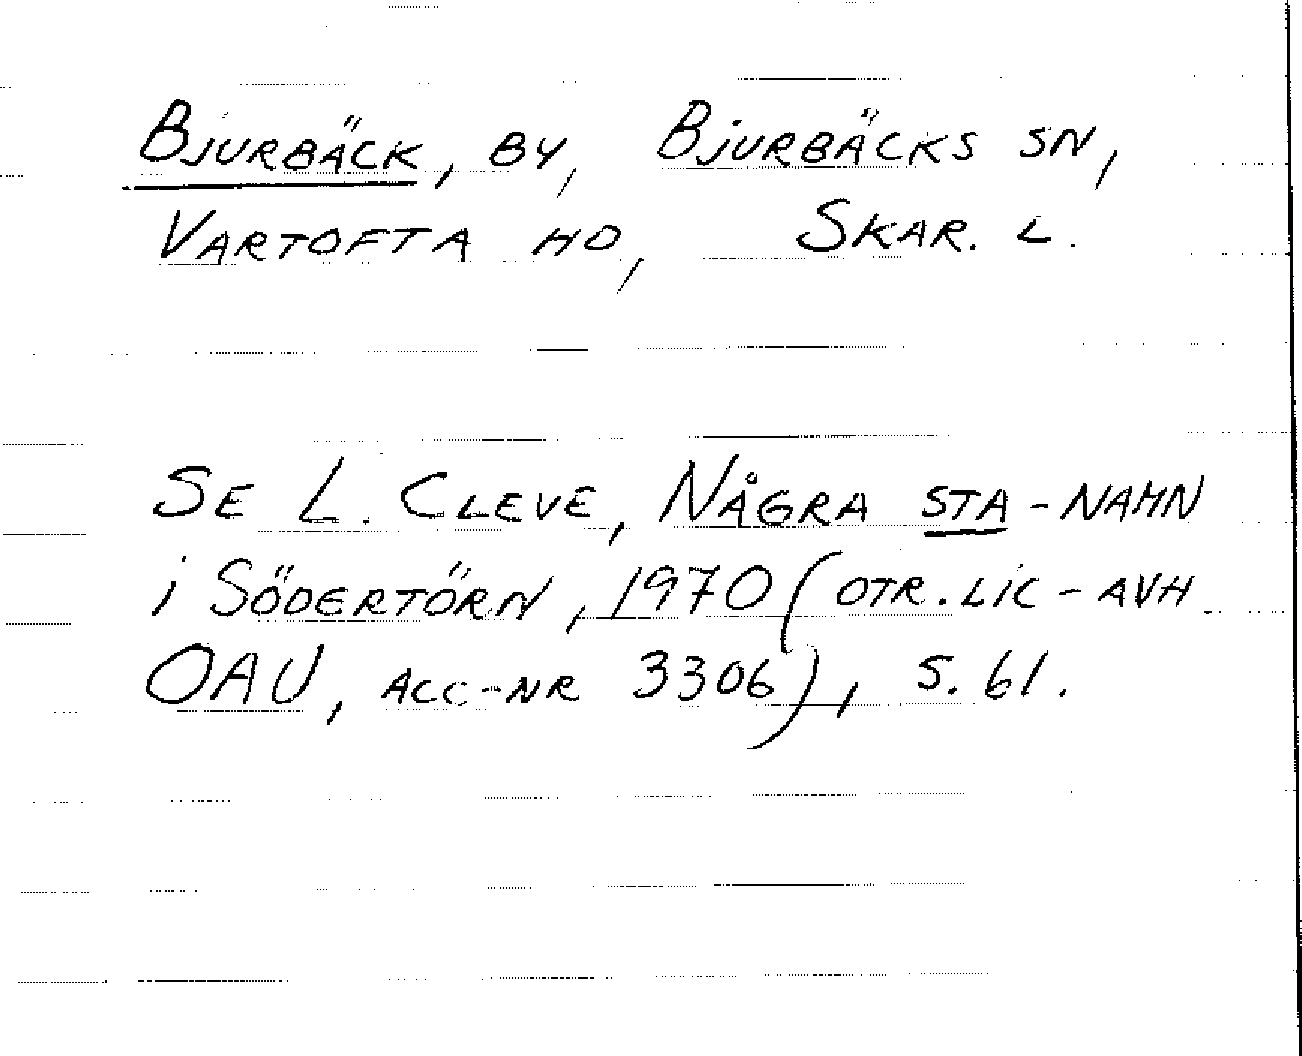 BJURBÄCK, BY, BJURBÄCKS SN,
VARTOFTA HD, SKAR. L.
SE L. CLEVE, NÅGRA STA-NAMN
i SÖDERTÖRN, 1970 (OTR. LIC-AVH
OAU, ACC-NR 3306), S. 61.